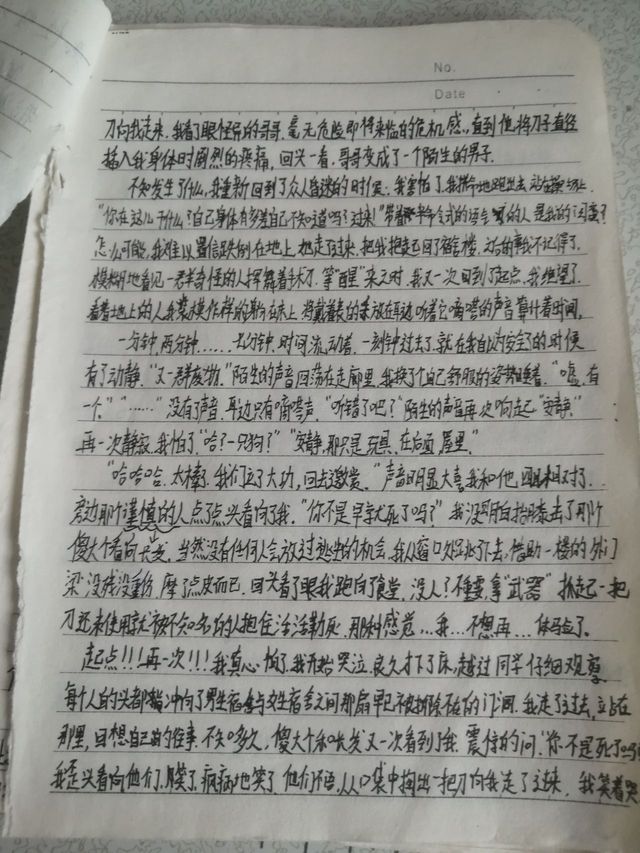 No.
Date
刀向我走来。我看了眼怪异的哥哥，毫无危险即将来临的危机感，直到他将刀子直径
插入我身体时剧烈的疼痛，回头一看，哥哥变成了一个陌生的男子。
不知发生了什么，我重新回到了众人昏迷的时候。我害怕了，我地跑出去，站在操场上。
"你在这儿干什么？自己身体有多差自己不知道吗？过来！"带着命令式的语气的人是我的
怎么可能，我难以置信跌倒在地上，他走了过来，把我抱起回了宿舍楼，过后的事我不记得了。
模糊地看见一群奇怪的人挥舞着手术刀，等"醒"来之时，我又一次回到了起点，我绝望了。
看着地上的人我装模作样的躺在床上，将戴着表的手放在耳边听着它嘀嗒的声音算计着时间，
一分钟，两分钟……七分钟，时间流动着，一刻钟过去了，就在我自以为安全了的时候
有了动静。"又一群废物。"陌生的声音回荡在走廊里，我换了个自己舒服的姿势睡着。"嘘，有
一个。""……"没有声音，耳边只有嘀嗒声。"听错了吧？"陌生的声音再次响起"安静。"
再一次静寂，我怕了。"哈？一只狗？""安静，那只是玩具，在后面，屋里。"
"哈哈哈，太棒了，我们立了大功，回去邀赏。"声音明显大喜，我和他，四眼相对了。
旁边那个谨慎的人点了点头看向了我。"你不是早就死了吗？"我没明白抬膝击了那个
傻大个看向长发，当然没有任何人会放过逃生的机会，我从窗口处跳下去，借助一楼的外门
梁，没残没重伤，摩了点皮而已，回头看了眼我跑向了食堂，没人？不重要，拿"武器"抓起一把
刀还未使用就被不知名的人抱住活活勒死，那种感觉…我…不想再…体验了。
起点！！！再一次！！！我真心怕了，我开始哭泣，良久才下了床，越过同学仔细观察
每个人的头都指冲向了男生宿舍与女生宿舍之间那扇早已被拆除不在的门洞，我走了过去，立站在
那里，回想自己的往事，不知多久，傻大个和长发又一次看到了我，震惊的问："你不是死了吗
我歪头看向他们，笑了，疯癫地笑了，他们不语，从口袋中掏出一把刀向我走了过来，我笑着哭